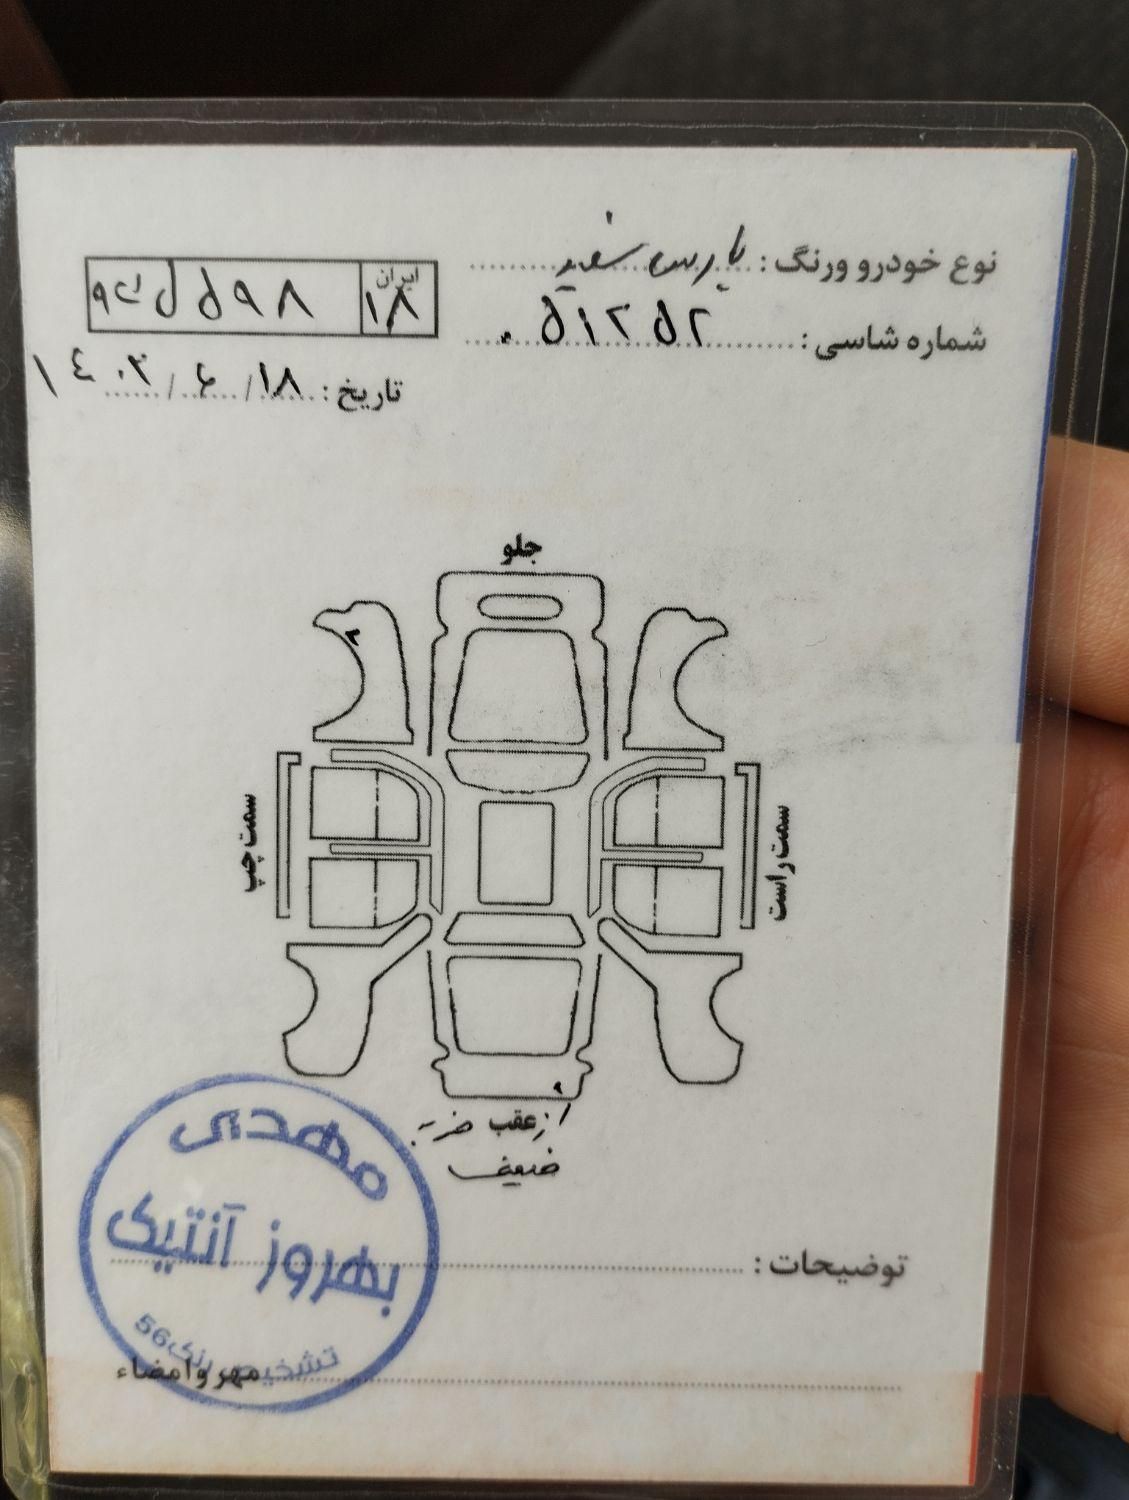 نوع خودرو ورنگ : پارس سفید
ایران
۱۸
۹۸۵ ل
شماره شاسی :
تاریخ : ۱۸ / ۶ / ۱۴۰۳
جلو
سمت چپ
سمت راست
عقب
از عقب ضربه
ضعیف
توضیحات :
مهدی
بهروز آنتیک
تشخیص رنگ 56
مهر و امضاء